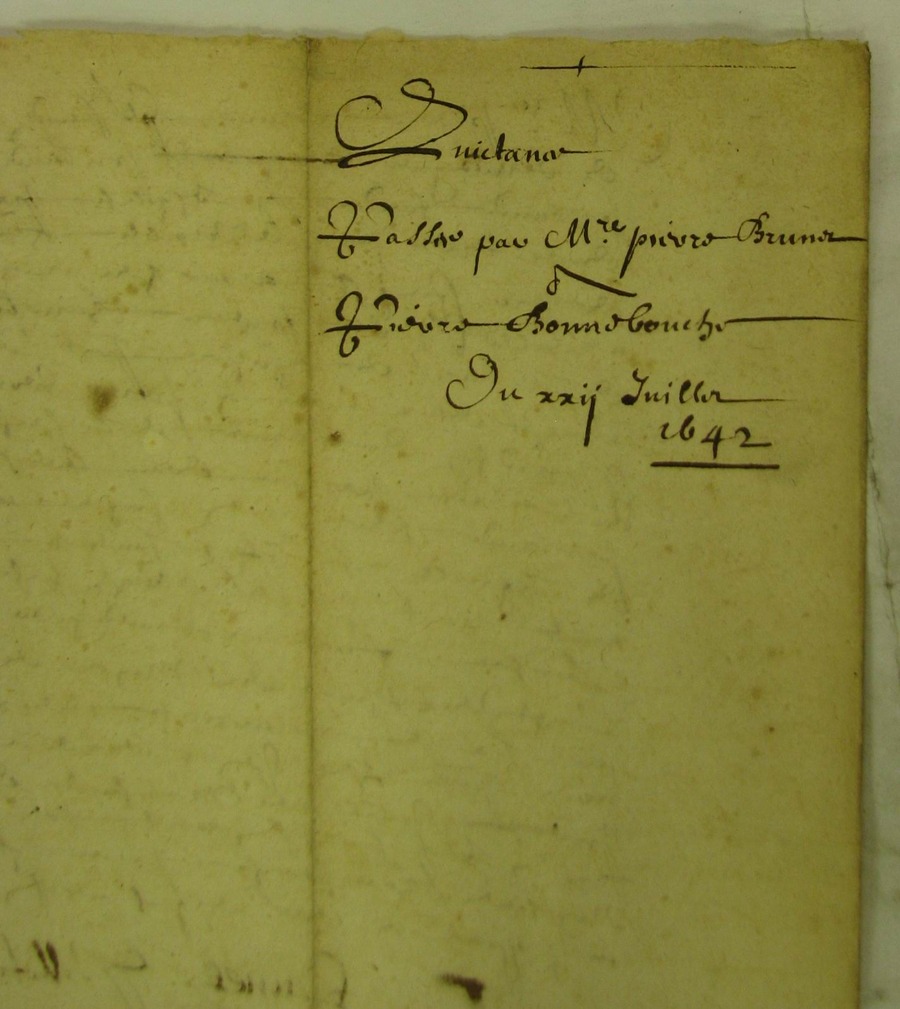 Quictance
Passee par Mre pierre Brunet
a
Pierre Bonnebouche
Du xxij Juillet
1642